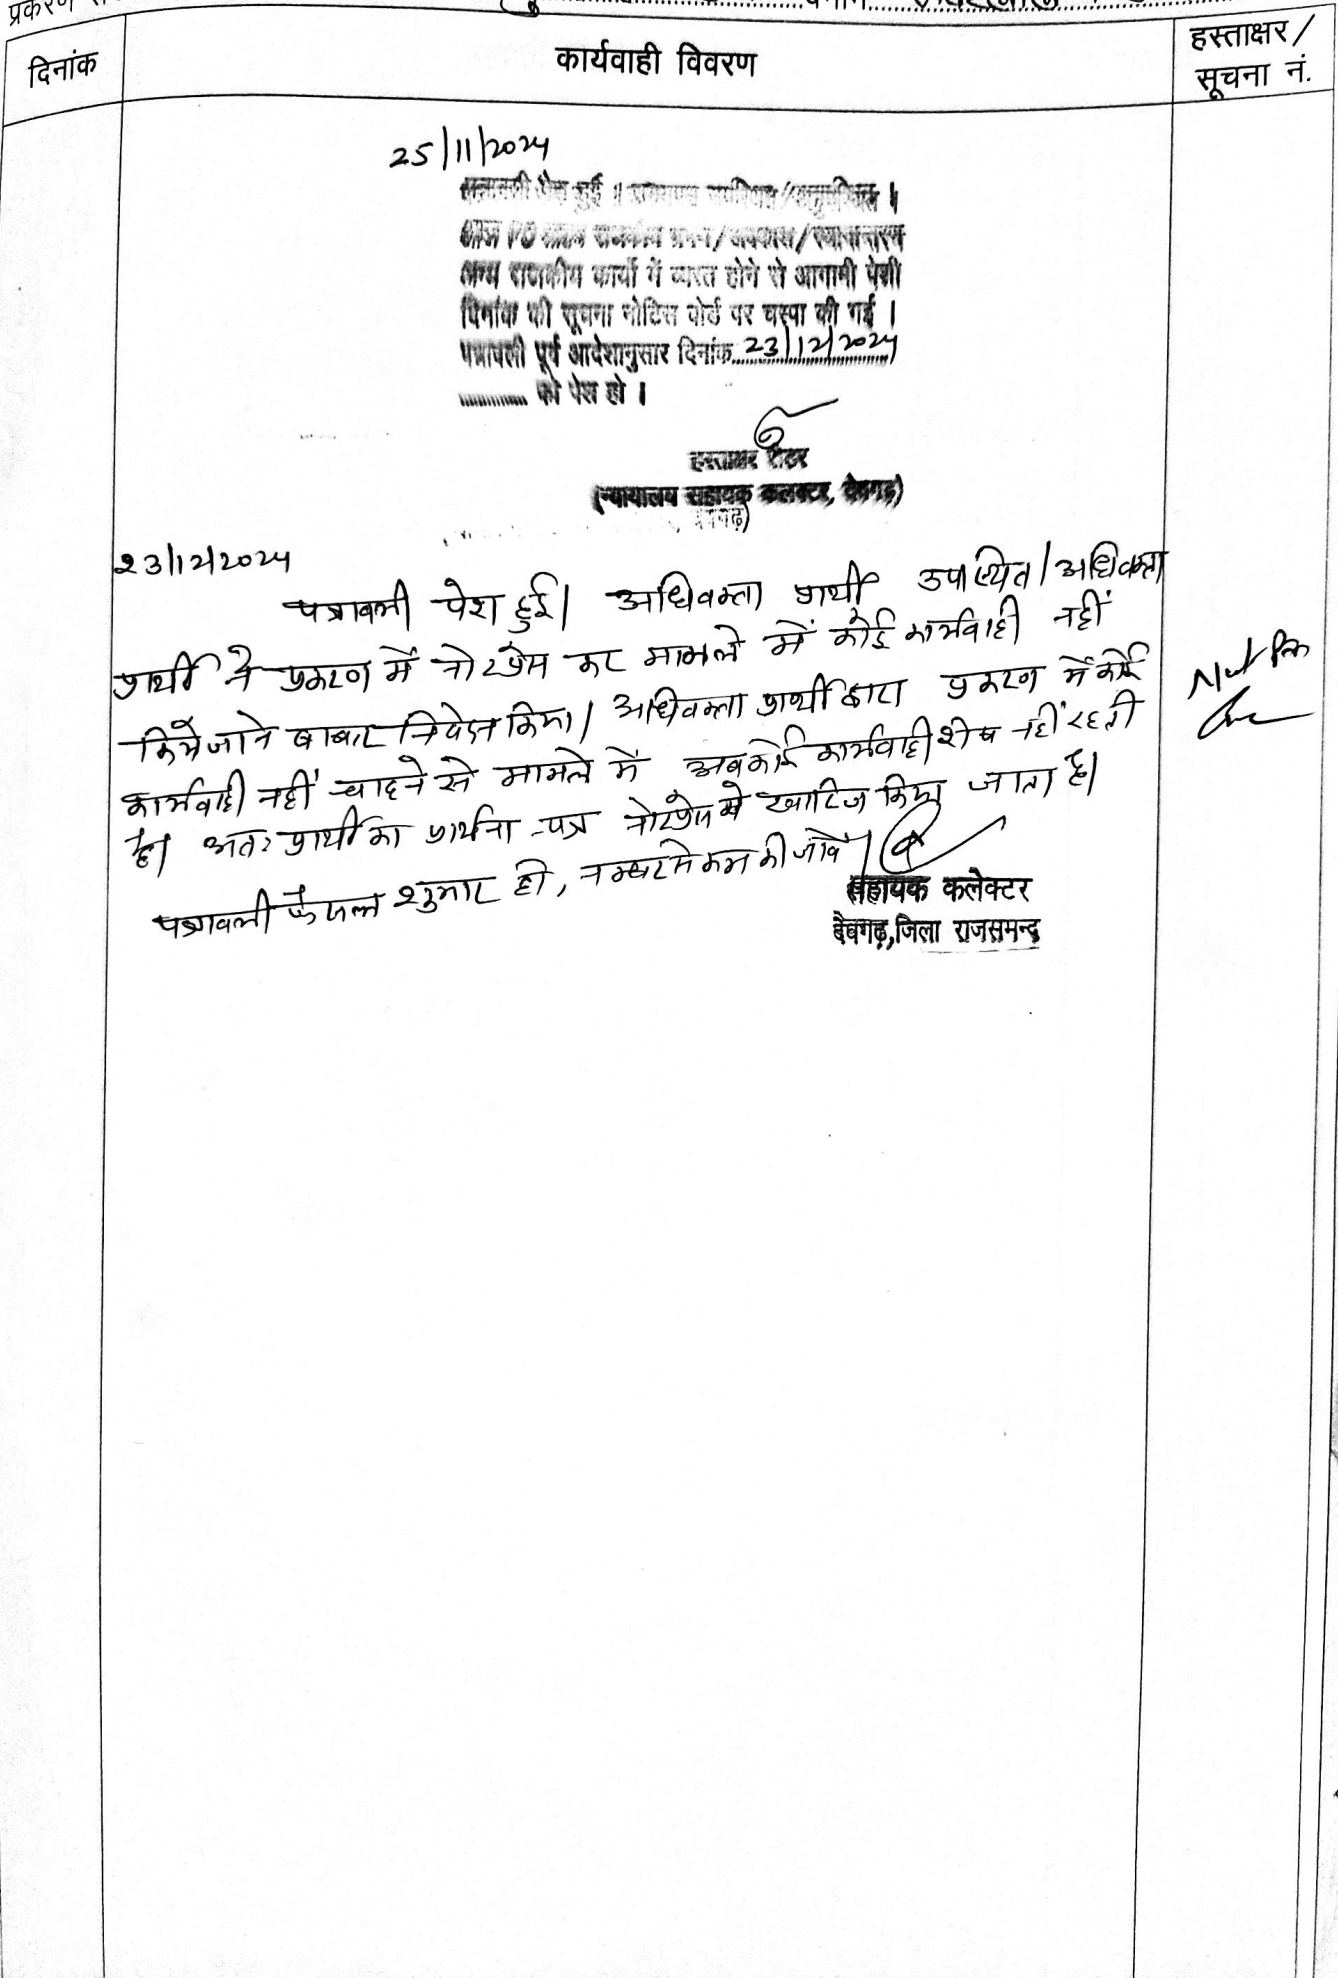 प्रकरण
दिनांक
कार्यवाही विवरण
हस्ताक्षर/
सूचना नं.
25/11/2024
पत्रावली पेश हुई । उपस्थित/अनुपस्थित ।
आज PO राजकीय भ्रमण/अवकाश/स्थानान्तरण
अन्य राजकीय कार्यो में व्यस्त होने से आगामी पेशी
दिनांक की सूचना नोटिस बोर्ड पर चस्पा की गई ।
पत्रावली पूर्व आदेशानुसार दिनांक 23/12/2024
............ को पेश हो ।
हस्ताक्षर रीडर
(न्यायालय सहायक कलक्टर, देवगढ़)
23/12/2024
पत्रावली पेश हुई। अधिवक्ता प्रार्थी उपस्थित। अधिवक्ता
प्रार्थी ने प्रकरण में नोटप्रेस कर मामले में कोई कार्यवाही नहीं
किये जाने बाबत निवेदन किया। अधिवक्ता प्रार्थी द्वारा प्रकरण में कोई
कार्यवाही नहीं चाहने से मामले में अब कोई कार्यवाही शेष नहीं रहती
है। अतः प्रार्थी का प्रार्थना-पत्र नोटप्रेस में खारिज किया जाता है।
पत्रावली फैसल शुमार हो, नम्बर से कम की जावे।
सहायक कलेक्टर
देवगढ़,जिला राजसमन्द